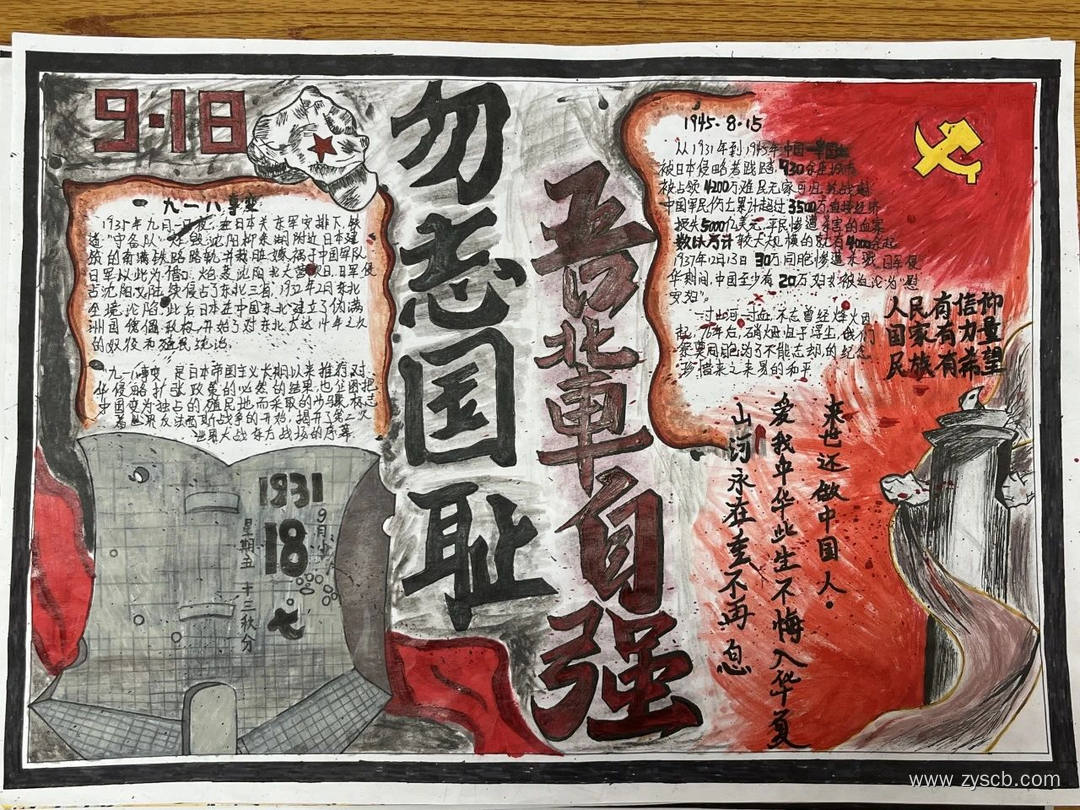 9·18
九一八事变
1931年九月一夜,在日本关东军安排下,铁
道"守备队"炸毁沈阳柳条湖附近日本建
筑的南满铁路路轨并栽赃嫁祸于中国军队
日军以此为借口,炮轰沈阳北大营,次日,日军侵
占沈阳,又陆续侵占了东北三省,1932年2月东北
全境沦陷,此后日本在中国东北建立了伪满
洲国傀儡政权,开始了对东北长达14年之久
的奴役和殖民统治。
九一八事变,是日本帝国主义长期以来推行对
华侵略扩张政策的必然的结果,也企图把
中国变为独占的殖民地而采取的
世界反法西斯战争的开始,揭开了第二次
世界大战东方战场的序幕
1931
9月
18
星期五
十三秋分
七
勿忘国耻
吾辈自强
1945·8·15
从1931年到1945年中国
被日本侵略者践踏,930余座城市
被占领,4200万难民无家可归,
中国军民伤亡累计超过3500万,直接经济
损失5000亿美元,平民惨遭杀害的血案
数以万计,较大规模的就有4000余起
1937年12月13日,30万同胞惨遭杀戮,日军侵
华期间,中国至少有20万妇女被迫沦为"慰
安妇"。
一寸山河一寸血,不忘曾经烽火四
起,76年后,硝烟也于浮生,我们
同胞为了不能忘却的纪念
珍惜来之不易的和平
人民有信仰
国家有力量
民族有希望
山河永在重不再息
爱我中华此生不悔入华夏
来世还做中国人。
www.zyscb.com